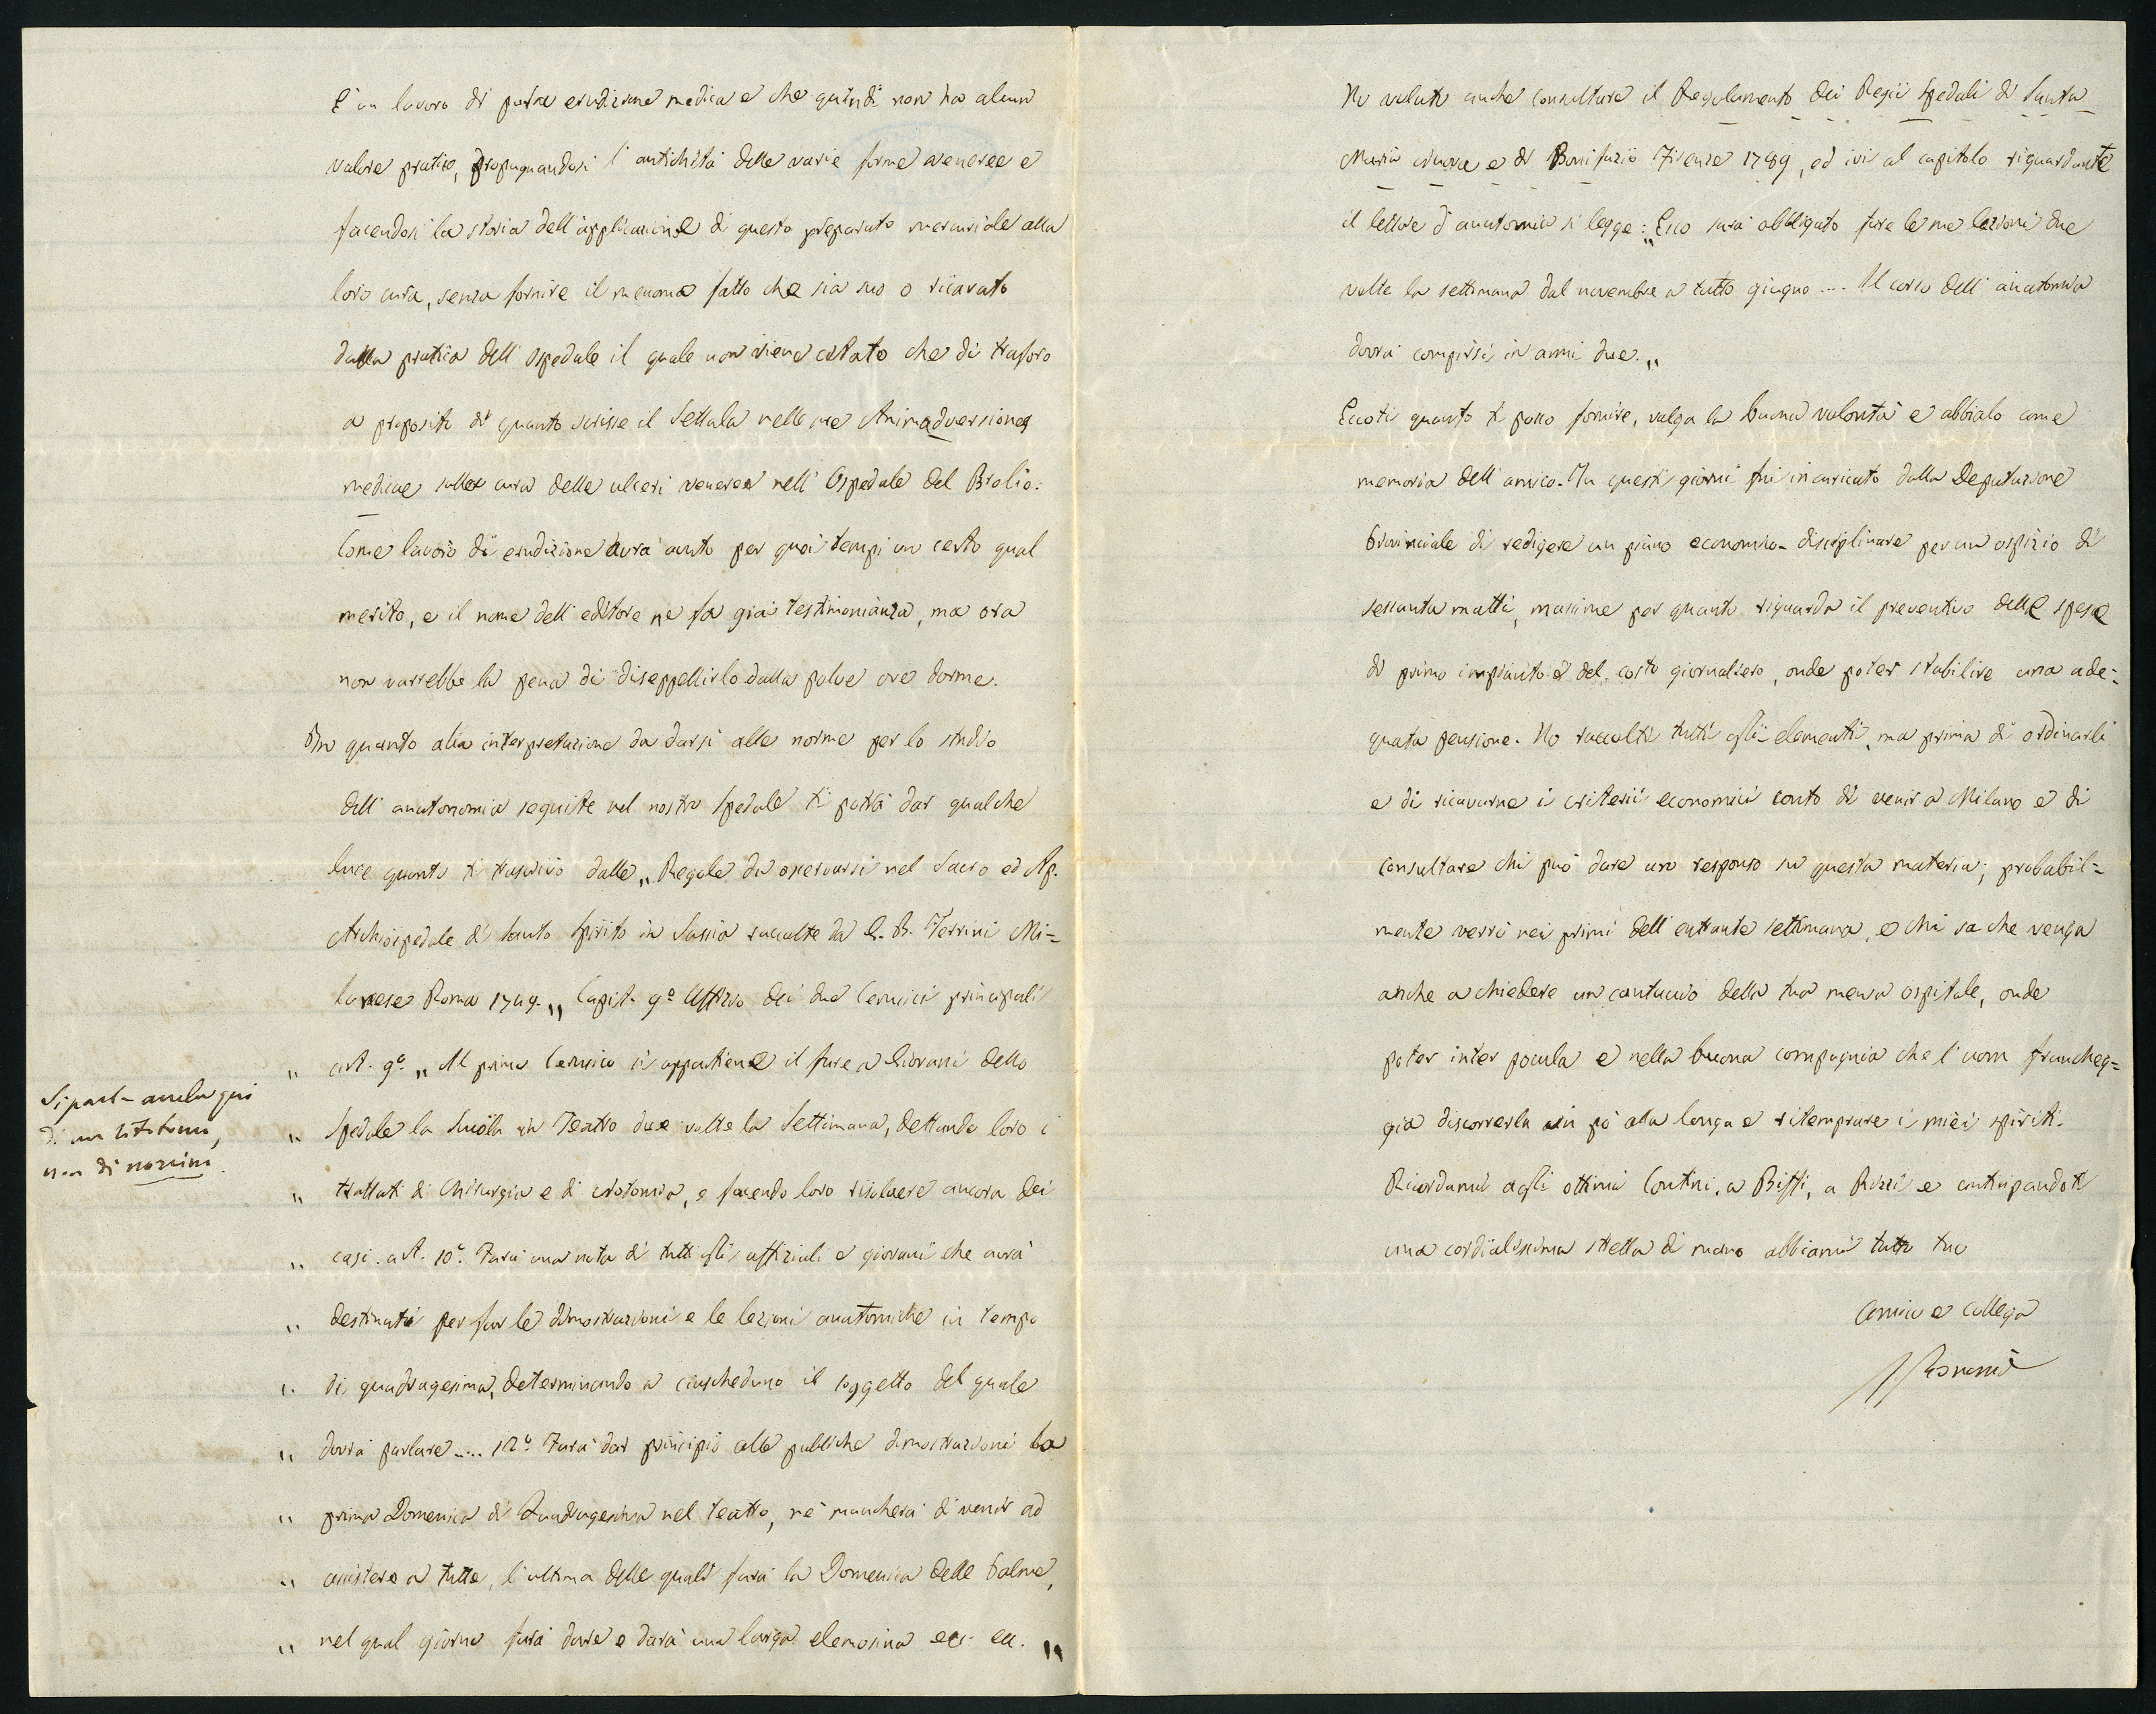 È un lavoro di pura erudizione medica e che quindi non ha alcun
valore pratico, propugnandosi l'antichità delle varie forme veneree e
facendosi la storia dell'applicazione di questo preparato mercuriale alla
loro cura, senza fornire il menomo fatto che sia suo o ricavato
dalla pratica dell'Ospedale il quale non viene citato che di traforo
a proposito di quanto scrisse il Settala nelle sue Animadversiones
medicae sulla cura delle ulceri veneree nell'Ospedale del Brolio.
Come lavoro di erudizione avrà avuto per quei tempi un certo qual
merito, e il nome dell'editore ne fa già testimonianza, ma ora
non varrebbe la pena di diseppellirlo dalla polve ove dorme.
In quanto alla interpretazione da darsi alle norme per lo studio
dell'anatonomia seguite nel nostro Spedale ti potrà dar qualche
luce quanto ti trascrivo dalle „Regole da osservarsi nel Sacro ed Ap.
Archiospedale di Santo Spirito in Sassia raccolte da G. B. Terrini Mi=
lanese Roma 1749.„ Capit. 9º Uffizio dei due Cerusici principali
„ art. 9º „Al primo Cerusico si appartiene il fare a Giovani dello
„ Spedale la Scuola in Teatro due volte la Settimana, dettando loro i
„ trattati di Chirurgia e di notomia, e facendo loro risolvere ancora dei
„ casi. art. 10º. Farà una nota di tutti gli uffiziali e giovani che avrà
„ destinati per far le dimostrazioni e le lezioni anatomiche in tempo
„ di quadragesima, determinando a ciascheduno il soggetto del quale
„ dovrà parlare .... 12º Farà dar principio alle publiche dimostrazioni la
„ prima Domenica di Quadragesima nel teatro, nè mancherà di venir ad
„ assistere a tutte, l'ultima delle quali sarà la Domenica delle Palme,
„ nel qual giorno farà dare e darà una larga elemosina ecc. ecc. „
Si parla anche qui
di notomia,
non di norcini.
Ho voluto anche consultare il Regolamento dei Regii Spedali di Santa
Maria nuova e di Bonifazio Firenze 1789, ed ivi al capitolo riguardante
il lettore d'anatomia si legge: „Esso sarà obbligato fare le sue lezioni due
volte la settimana dal novembre a tutto giugno .... Il corso dell'anatomia
dovrà compirsi in anni due.„
Eccoti quanto ti posso fornire, valga la buona volontà e abbialo come
memoria dell'amico. In questi giorni fui incaricato dalla Deputazione
Provinciale di redigere un piano economico-disciplinare per un ospizio di
sessanta matti, massime per quanto riguarda il preventivo delle spese
di primo impianto e del costo giornaliero, onde poter stabilire una ade=
guata pensione. Ho raccolti tutti gli elementi, ma prima di ordinarli
e di ricavarne i criterii economici conto di venir a Milano e di
consultare chi può dare un responso su questa materia; probabil=
mente verrò nei primi dell'entrante settimana, e chi sa che venga
anche a chiedere un cantuccio della tua mensa ospitale, onde
poter inter pocula e nella buona compagnia che l'uom francheg=
gia discorrerla un pò alla longa e ritemprare i miei spiriti.
Ricordami agli ottimi Contini, a Biffi, a Rizzi e anticipandoti
una cordialissima stretta di mano abbiami tutto tuo
Amico e Collega